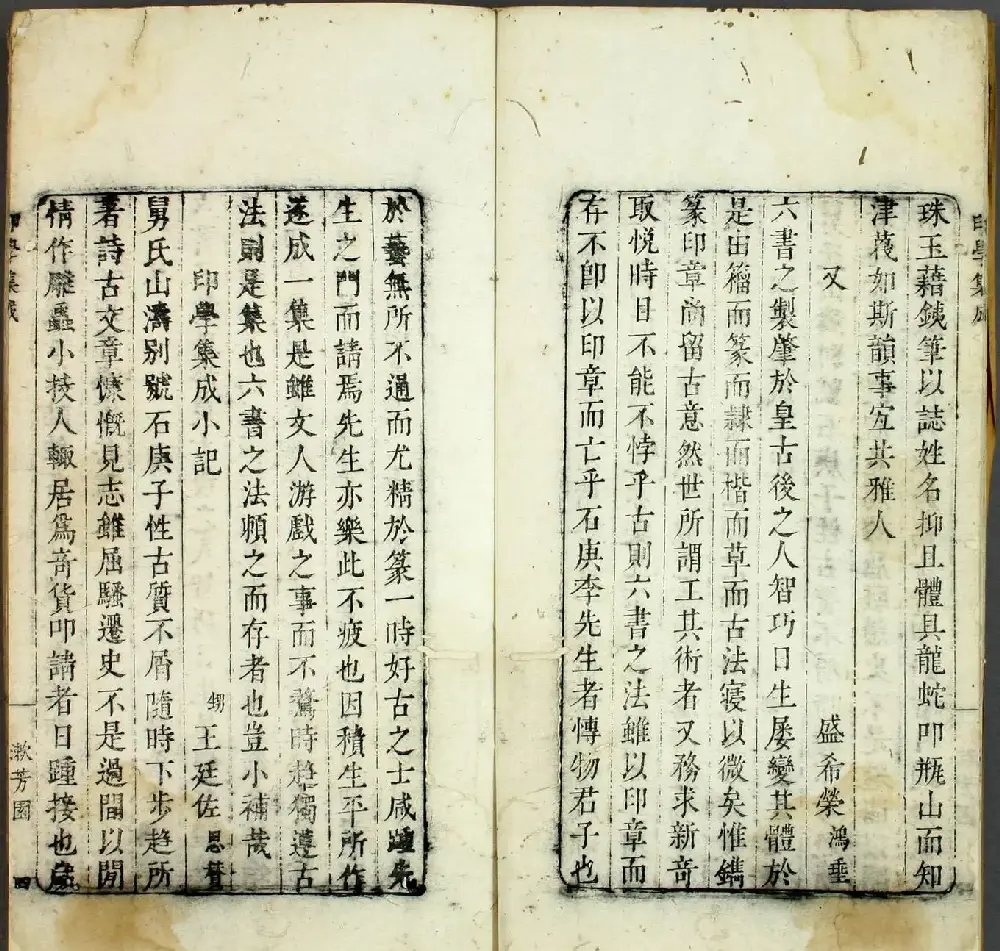 珠玉藉鐵筆以誌姓名抑且體具龍蛇叩瓶山而知
津茂如斯韻事宐共雅人
又
盛希榮鴻垂
六書之製肇於皇古後之人智巧日生屡變其體於
是由籀而篆而隷而楷而草而古法寖以微矣惟鐫
篆印章尚留古意然世所謂工其術者又務求新竒
取悅時目不能不悖乎古則六書之法雖以印章而
存不卽以印章而亡乎石庚李先生者愽物君子也
於藝無所不過而尤精於篆一時好古之士咸踵先
生之門而請焉先生亦樂此不疲也因積生平所作
遂成一集是雖文人游戲之事而不驚時趨獨遵古
法則是集也六書之法頼之而存者也豈小補㢤
印學集成小記
甥王廷佐恩贊
舅氏山濤别號石庚子性古質不屑隨時下步趋所
著詩古文章慷慨見志雖屈騷遷史不是過間以閒
情作雕蟲小技人輙居爲竒貨叩請者日踵接也
印學集成
印學集成
漱芳園
四